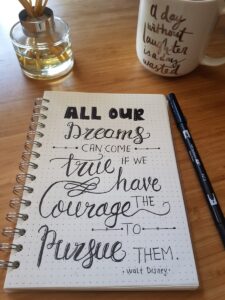 a day
without
laughter
is a day
wasted
ALL OUR
Dreams
CAN COME
true IF WE
have
Courage THE
TO
Pursue THEM.
- Walt Disney -